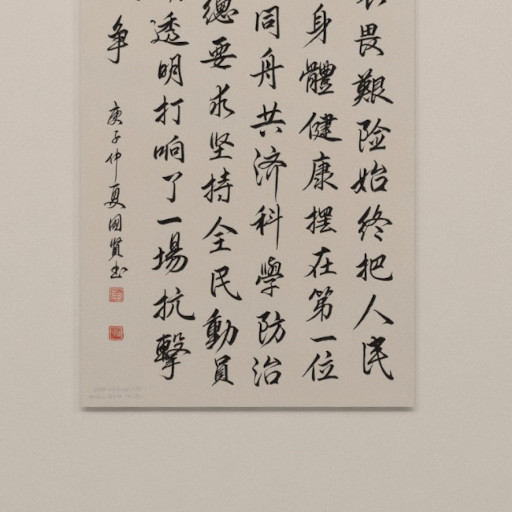 畏艱险始终把人民
身體健康摆在第一位
同舟共济科學防治
總要求坚持全民動員
透明打响了一場抗擊
争
庚子仲夏国賢书